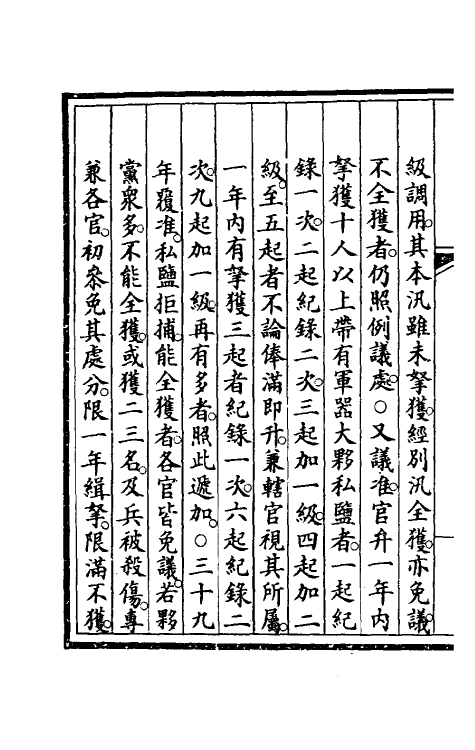 級調用。其本汛雖未拏獲。經別汛全獲。亦免議。
不全獲者。仍照例議處。○又議准。官弁一年內
拏獲十人以上帶有軍器大夥私鹽者。一起紀
錄一次。二起紀錄二次。三起加一級。四起加二
級。至五起者不論俸滿即升。兼轄官視其所屬。
一年內有拏獲三起者紀錄一次。六起紀錄二
次。九起加一級。再有多者。照此遞加。○三十九
年覆准。私鹽拒捕。能全獲者。各官皆免議。若夥
黨衆多。不能全獲。或獲二三名。及兵被殺傷。專
兼各官。初參免其處分。限一年緝拏。限滿不獲。